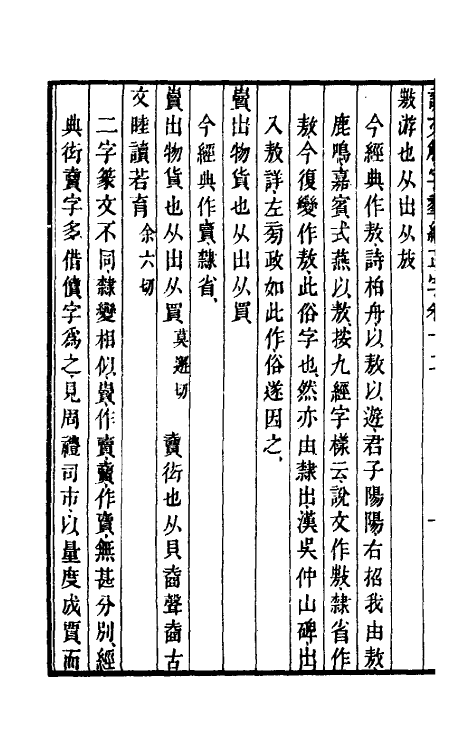 敖游也从出从放
今經典作敖詩柏舟以敖以遊君子陽陽右招我由敖
鹿鳴嘉賓式燕以敖按九經字樣云說文作敖隸省作
敖今復變作敖此俗字也然亦由隸出漢吳仲山碑出
入敖詳左㫄政如此作俗遂因之
𧷓出物貨也从出从買
今經典作賣隸省
𧷓出物貨也从出从買莫邂切 𧶠衒也从貝𡍬聲𡍬古
文睦讀若育余六切
二字篆文不同隸變相似𧷓作賣𧶠作賣無甚分別經
典衒𧶠字多借儥字爲之見周禮司市以量度成賈而